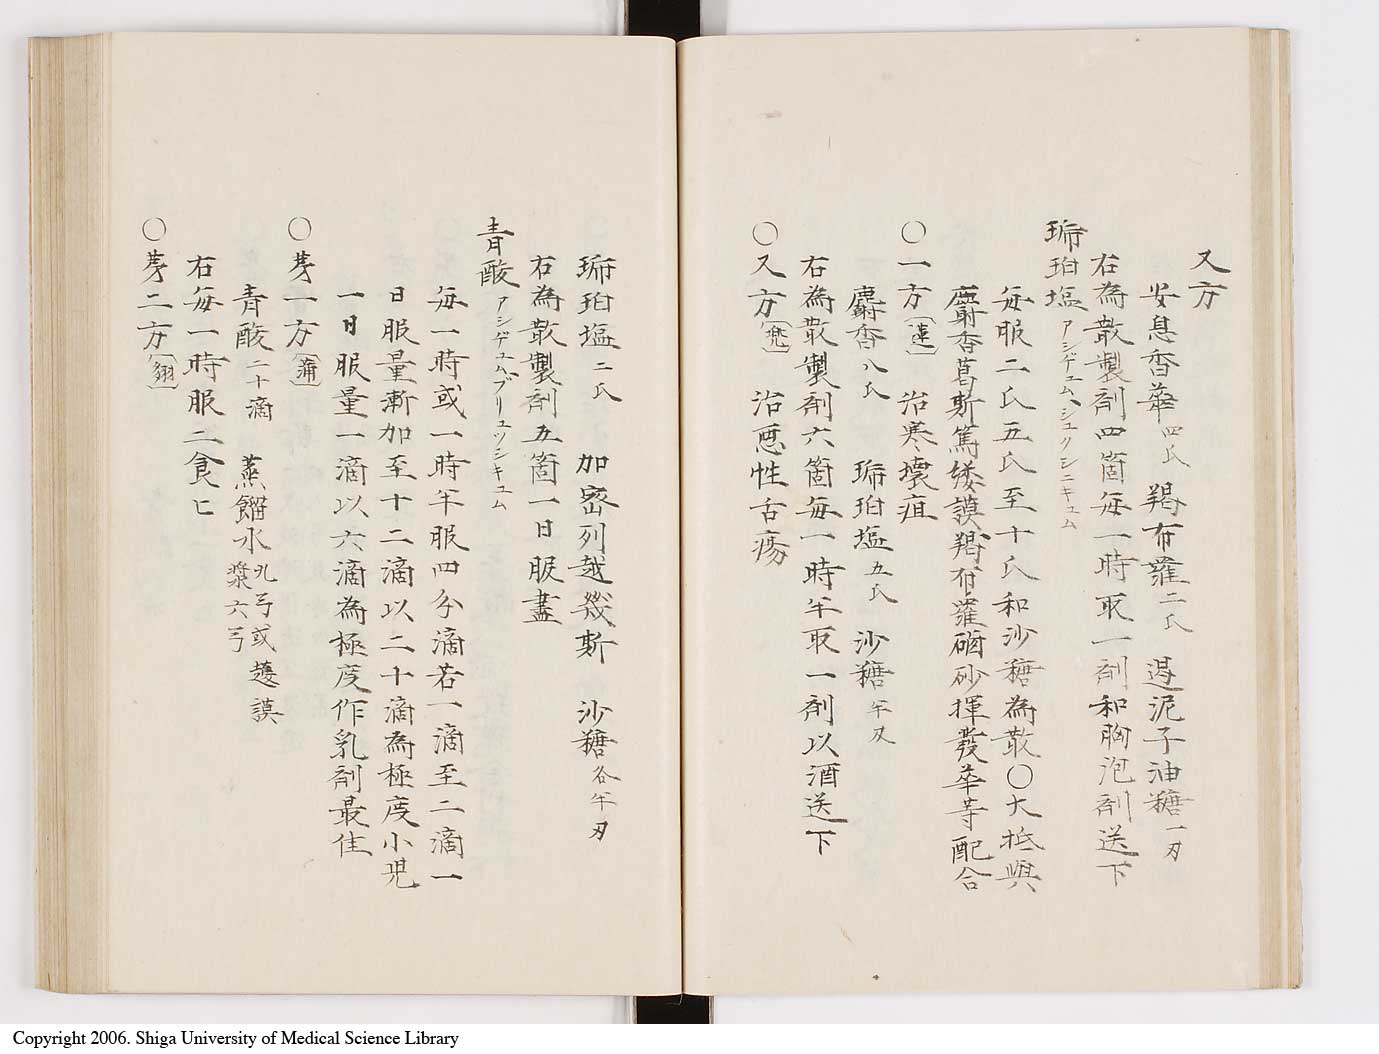 又方
安息香華四氏 羯布羅二氏 遏泥子油糖一刃
右為散製剤四箇每一時取一剤和胸泡剤送下
琥珀塩アシヂュム、シュクシニキュム
每服二氏五氏至十氏和沙糖為散〇大抵與
麝香葛斯篤縷謨羯布羅硇砂揮發華等配合
〇一方〔蓮〕 治寒壊疽
麝香八氏 琥珀塩五氏 沙糖半刃
右為散製剤六箇每一時半取一剤以酒送下
〇又方〔㐫〕 治悪性舌瘍
琥珀塩二氏 加密列越幾斯 沙糖各半刃
右為散製剤五箇一日服盡
青酸アシヂュム、ブリュッシキュム
每一時或一時半服四分滴若一滴至二滴一
日服量漸加至十二滴以二十滴為極度小児
一日服量一滴以六滴為極度作乳剤最佳
〇勞一方〔蒲〕
青酸二十滴 蒸餾水九弓或䕮謨漿六弓
右每一時服二食匕
〇勞二方〔翎〕
Copyright 2006. Shiga University of Medical Science Library